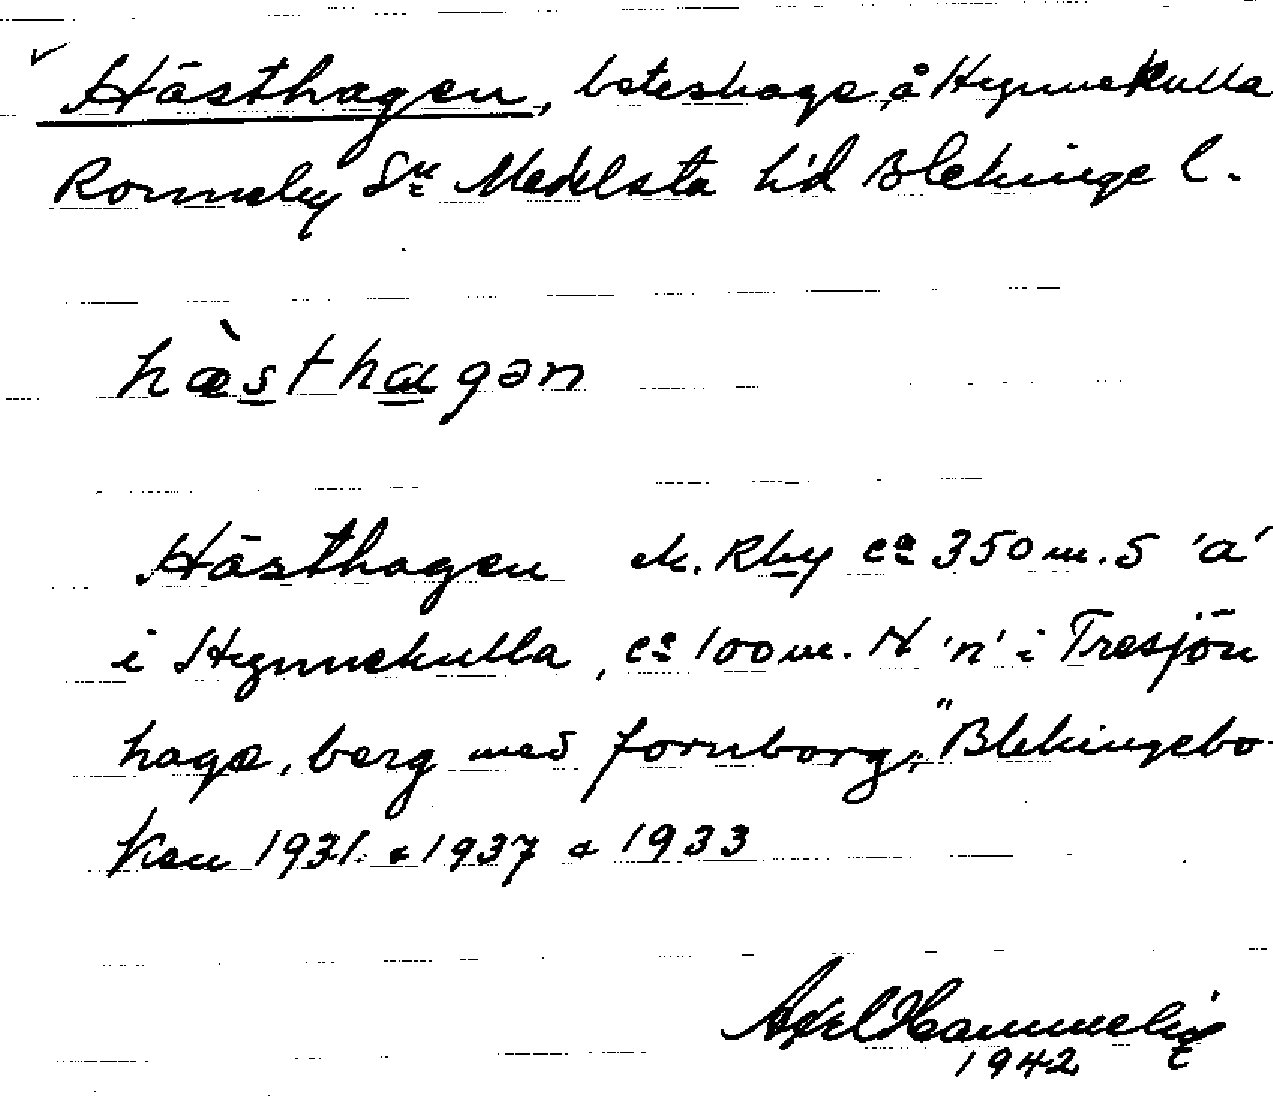 Hästhagen, beteshage å Hynnekulla
Ronneby Sn Medelsta h'd Blekinge l.
hæ̀sthagən
Hästhagen M. Rby ca 350 m. S 'a'
i Hynnekulla, ca 100 m. N 'n' i Tresjön
hage, berg med fornborg, "Blekingebo
ken 1931 & 1937 & 1933
Axel
1942